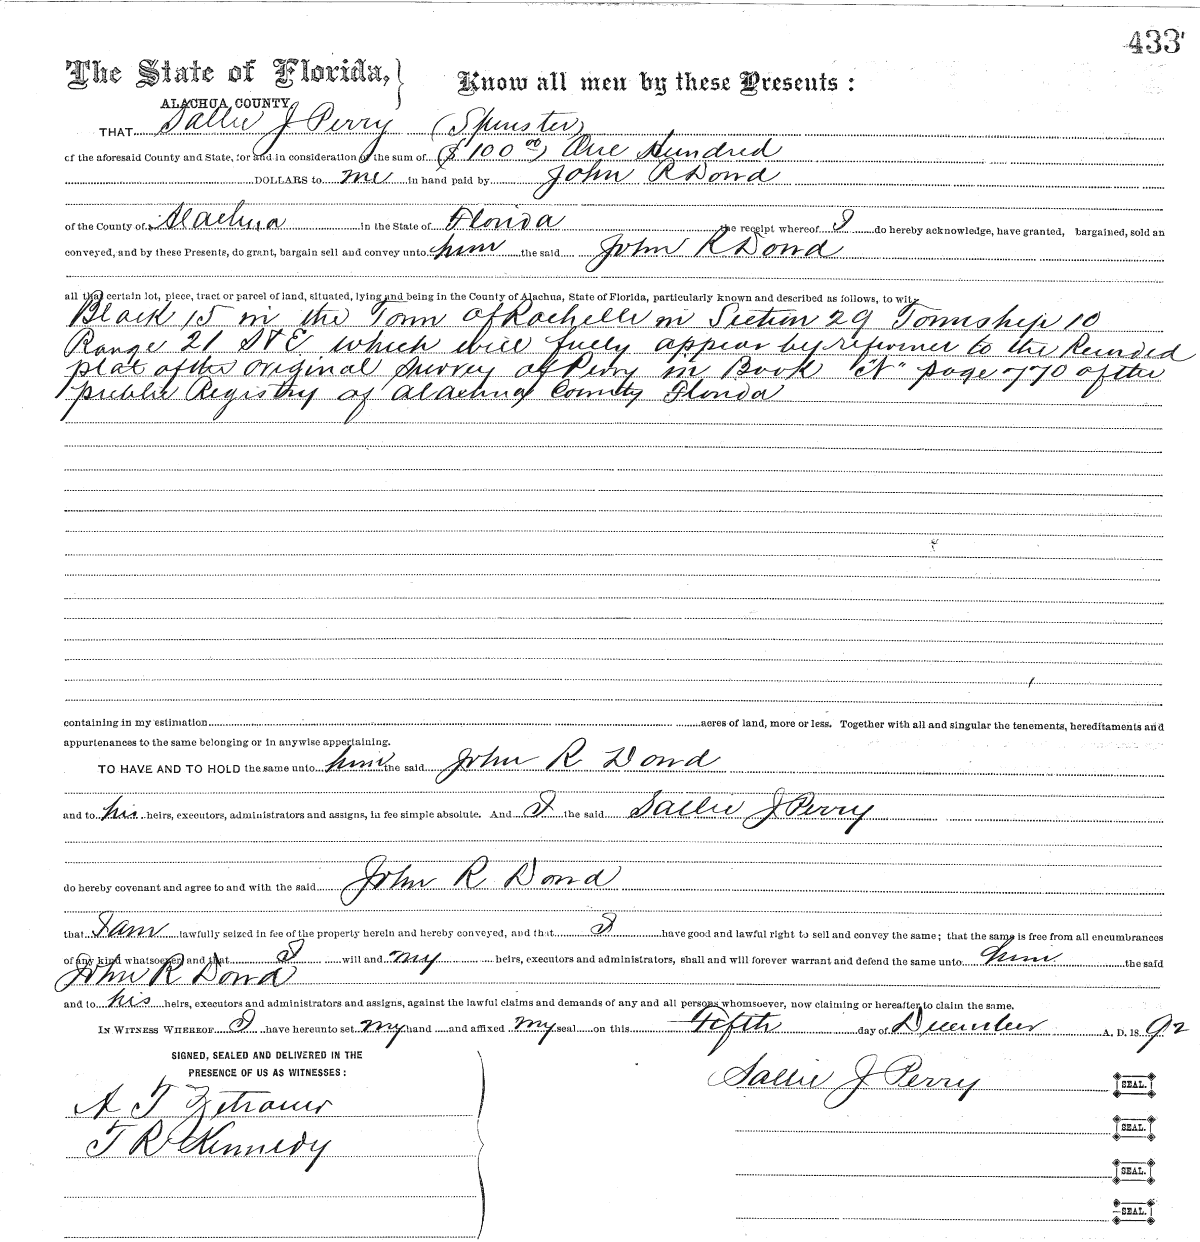 433
The State of Florida,
ALACHUA COUNTY
Know all men by these Presents :
THAT Sallie J Perry (Spinster)
of the aforesaid County and State, for and in consideration of the sum of ($100 00) One Hundred
DOLLARS to me in hand paid by John R Dowd
of the County of Alachua in the State of Florida the receipt whereof I do hereby acknowledge, have granted, bargained, sold an
conveyed, and by these Presents, do grant, bargain sell and convey unto him the said John R Dowd
all that certain lot, piece, tract or parcel of land, situated, lying and being in the County of Alachua, State of Florida, particularly known and described as follows, to wit,
Block 15 in the Town of Rochelle in Section 29 Township 10
Range 21 S & E which will fully appear by referrence to the Recorded
plat of the original Survey of Perry in Book "N" page 770 of the
public Registry of Alachua County Florida
containing in my estimation acres of land, more or less. Together with all and singular the tenements, hereditaments and
appurtenances to the same belonging or in anywise appertaining.
TO HAVE AND TO HOLD the same unto him the said John R Dowd
and to his heirs, executors, administrators and assigns, in fee simple absolute. And I the said Sallie J Perry
do hereby covenant and agree to and with the said John R Dowd
that I am lawfully seized in fee of the property herein and hereby conveyed, and that I have good and lawful right to sell and convey the same; that the same is free from all encumbrances
of any kind whatsoever, and that I will and my heirs, executors and administrators, shall and will forever warrant and defend the same unto him the said
John R Dowd
and to his heirs, executors and administrators and assigns, against the lawful claims and demands of any and all persons whomsoever, now claiming or hereafter to claim the same.
IN WITNESS WHEREOF I have hereunto set my hand and affixed my seal on this Fifth day of December A. D. 18 92
SIGNED, SEALED AND DELIVERED IN THE
PRESENCE OF US AS WITNESSES :
Sallie J Perry SEAL.
A T Zetrouer
SEAL.
T R Kennedy
SEAL.
SEAL.